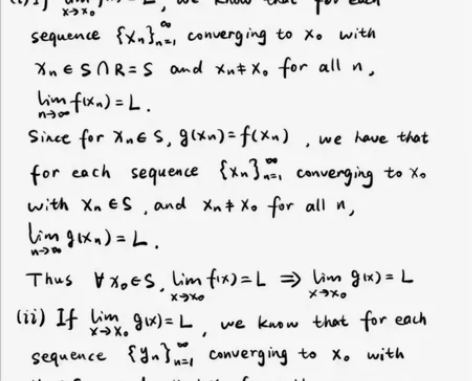 (i) If lim f(x) = L, we know that for each
x→x₀
sequence {xₙ}ₙ₌₁^∞ converging to x₀ with
xₙ ∈ S∩R = S and xₙ ≠ x₀ for all n,
lim f(xₙ) = L.
n→∞
Since for xₙ ∈ S, g(xₙ) = f(xₙ), we have that
for each sequence {xₙ}ₙ₌₁^∞ converging to x₀
with xₙ ∈ S, and xₙ ≠ x₀ for all n,
lim g(xₙ) = L.
n→∞
Thus ∀ x₀ ∈ S, lim f(x) = L ⇒ lim g(x) = L
x→x₀ x→x₀
(ii) If lim g(x) = L, we know that for each
x→x₀
sequence {yₙ}ₙ₌₁^∞ converging to x₀ with